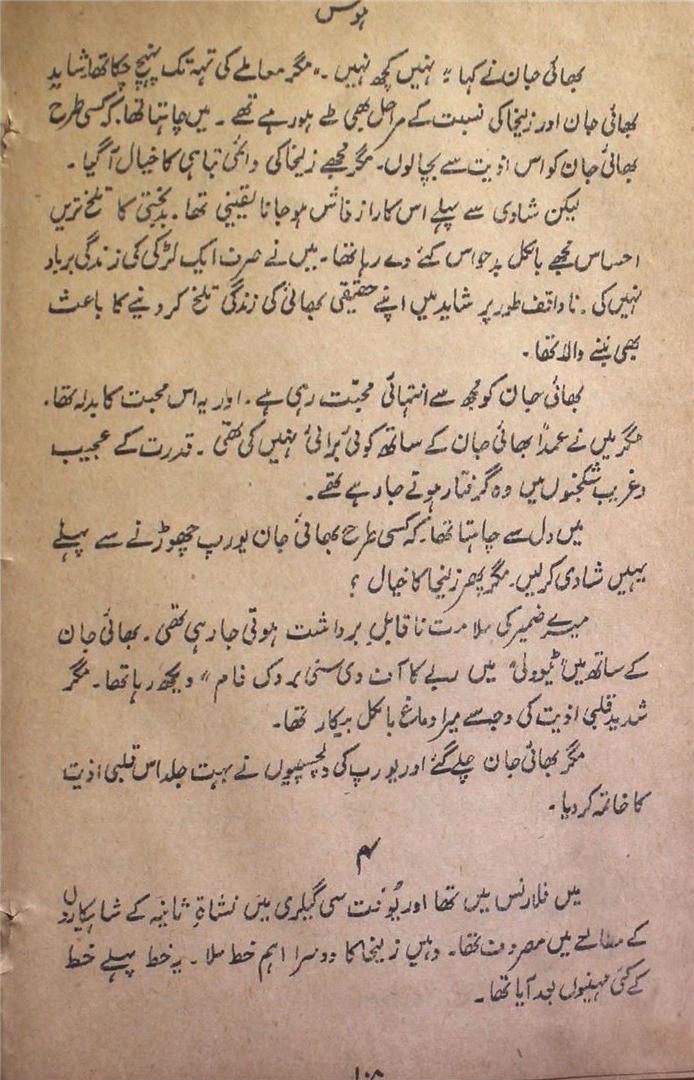 ہوس
بھائی جان نے کہا "نہیں کچھ نہیں۔" مگر معاملے کی تہہ تک پہنچ چکا تھا شاید
بھائی جان اور زلیخا کی نسبت کے مراحل بھی طے ہو رہے تھے۔ میں چاہتا تھا کہ کسی طرح
بھائی جان کو اس اذیت سے بچا لوں۔ مگر مجھے زلیخا کی دائمی تباہی کا خیال آ گیا۔
لیکن شادی سے پہلے اس کا راز فاش ہو جانا یقینی تھا۔ بدبختی کا تلخ ترین
احساس مجھے بالکل بدحواس کئے دے رہا تھا۔ میں نے صرف ایک لڑکی کی زندگی برباد
نہیں کی۔ ناواقف طور پر شاید میں اپنے حقیقی بھائی کی زندگی تلخ کر دینے کا باعث
بھی بننے والا تھا۔
بھائی جان کو مجھ سے انتہائی محبت رہی ہے۔ اور یہ اس محبت کا بدلہ تھا۔
مگر میں نے عمداً بھائی جان کے ساتھ کوئی برائی نہیں کی تھی۔ قدرت کے عجیب
و غریب شکنجوں میں وہ گرفتار ہوتے جا رہے تھے۔
میں دل سے چاہتا تھا۔ کہ کسی طرح بھائی جان یورپ چھوڑنے سے پہلے
یہیں شادی کر لیں۔ مگر پھر زلیخا کا خیال؟
میرے ضمیر کی ملامت ناقابل برداشت ہوتی جا رہی تھی۔ بھائی جان
کے ساتھ میں "ٹیوولی" میں ربے کا آف دی سنی بروک فام" دیکھ رہا تھا۔ مگر
شدید قلبی اذیت کی وجہ سے میرا دماغ بالکل بیکار تھا۔
مگر بھائی جان چلے گئے اور یورپ کی دلچسپیوں نے بہت جلد اس قلبی اذیت
کا خاتمہ کر دیا۔
۴
میں فلارنس میں تھا اور یُوفت سی گیلری میں نشاۃِ ثانیہ کے شاہکاروں
کے مطالعے میں مصروف تھا۔ وہیں زلیخا کا دوسرا اہم خط ملا۔ یہ خط پہلے خط
کے کئی مہینوں بعد آیا تھا۔